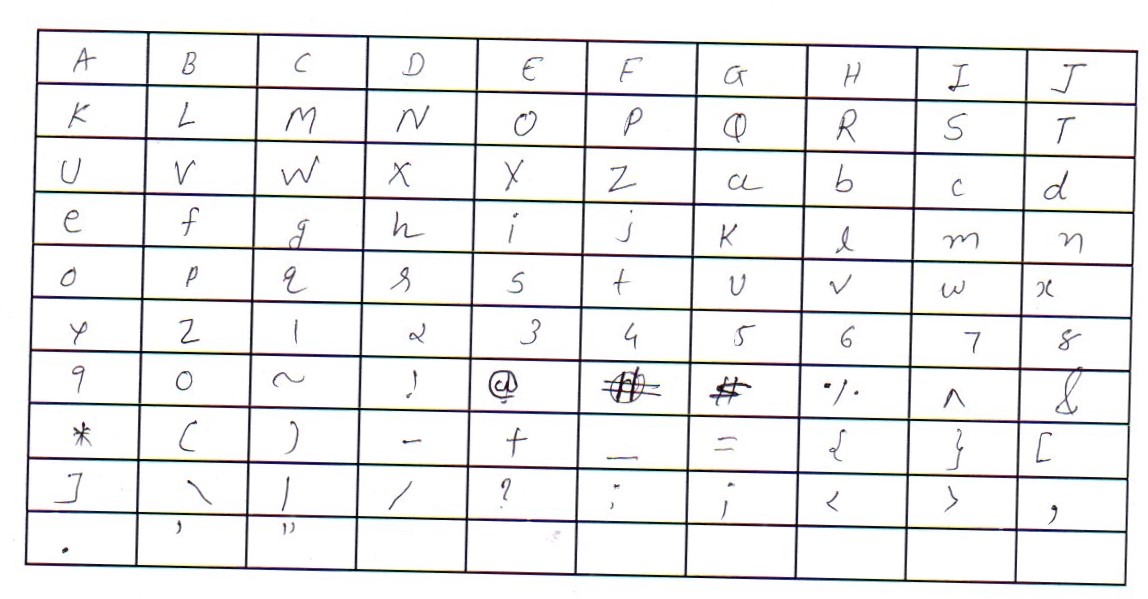 A B C D E F G H I J
K L M N O P Q R S T
U V W X Y Z a b c d
e f g h i j k l m n
o p q r s t u v w x
y z 1 2 3 4 5 6 7 8
9 0 ~ ! @ # % ^ &
* ( ) - + _ = { } [
] \ | / ? ; ; < > ,
. ' "